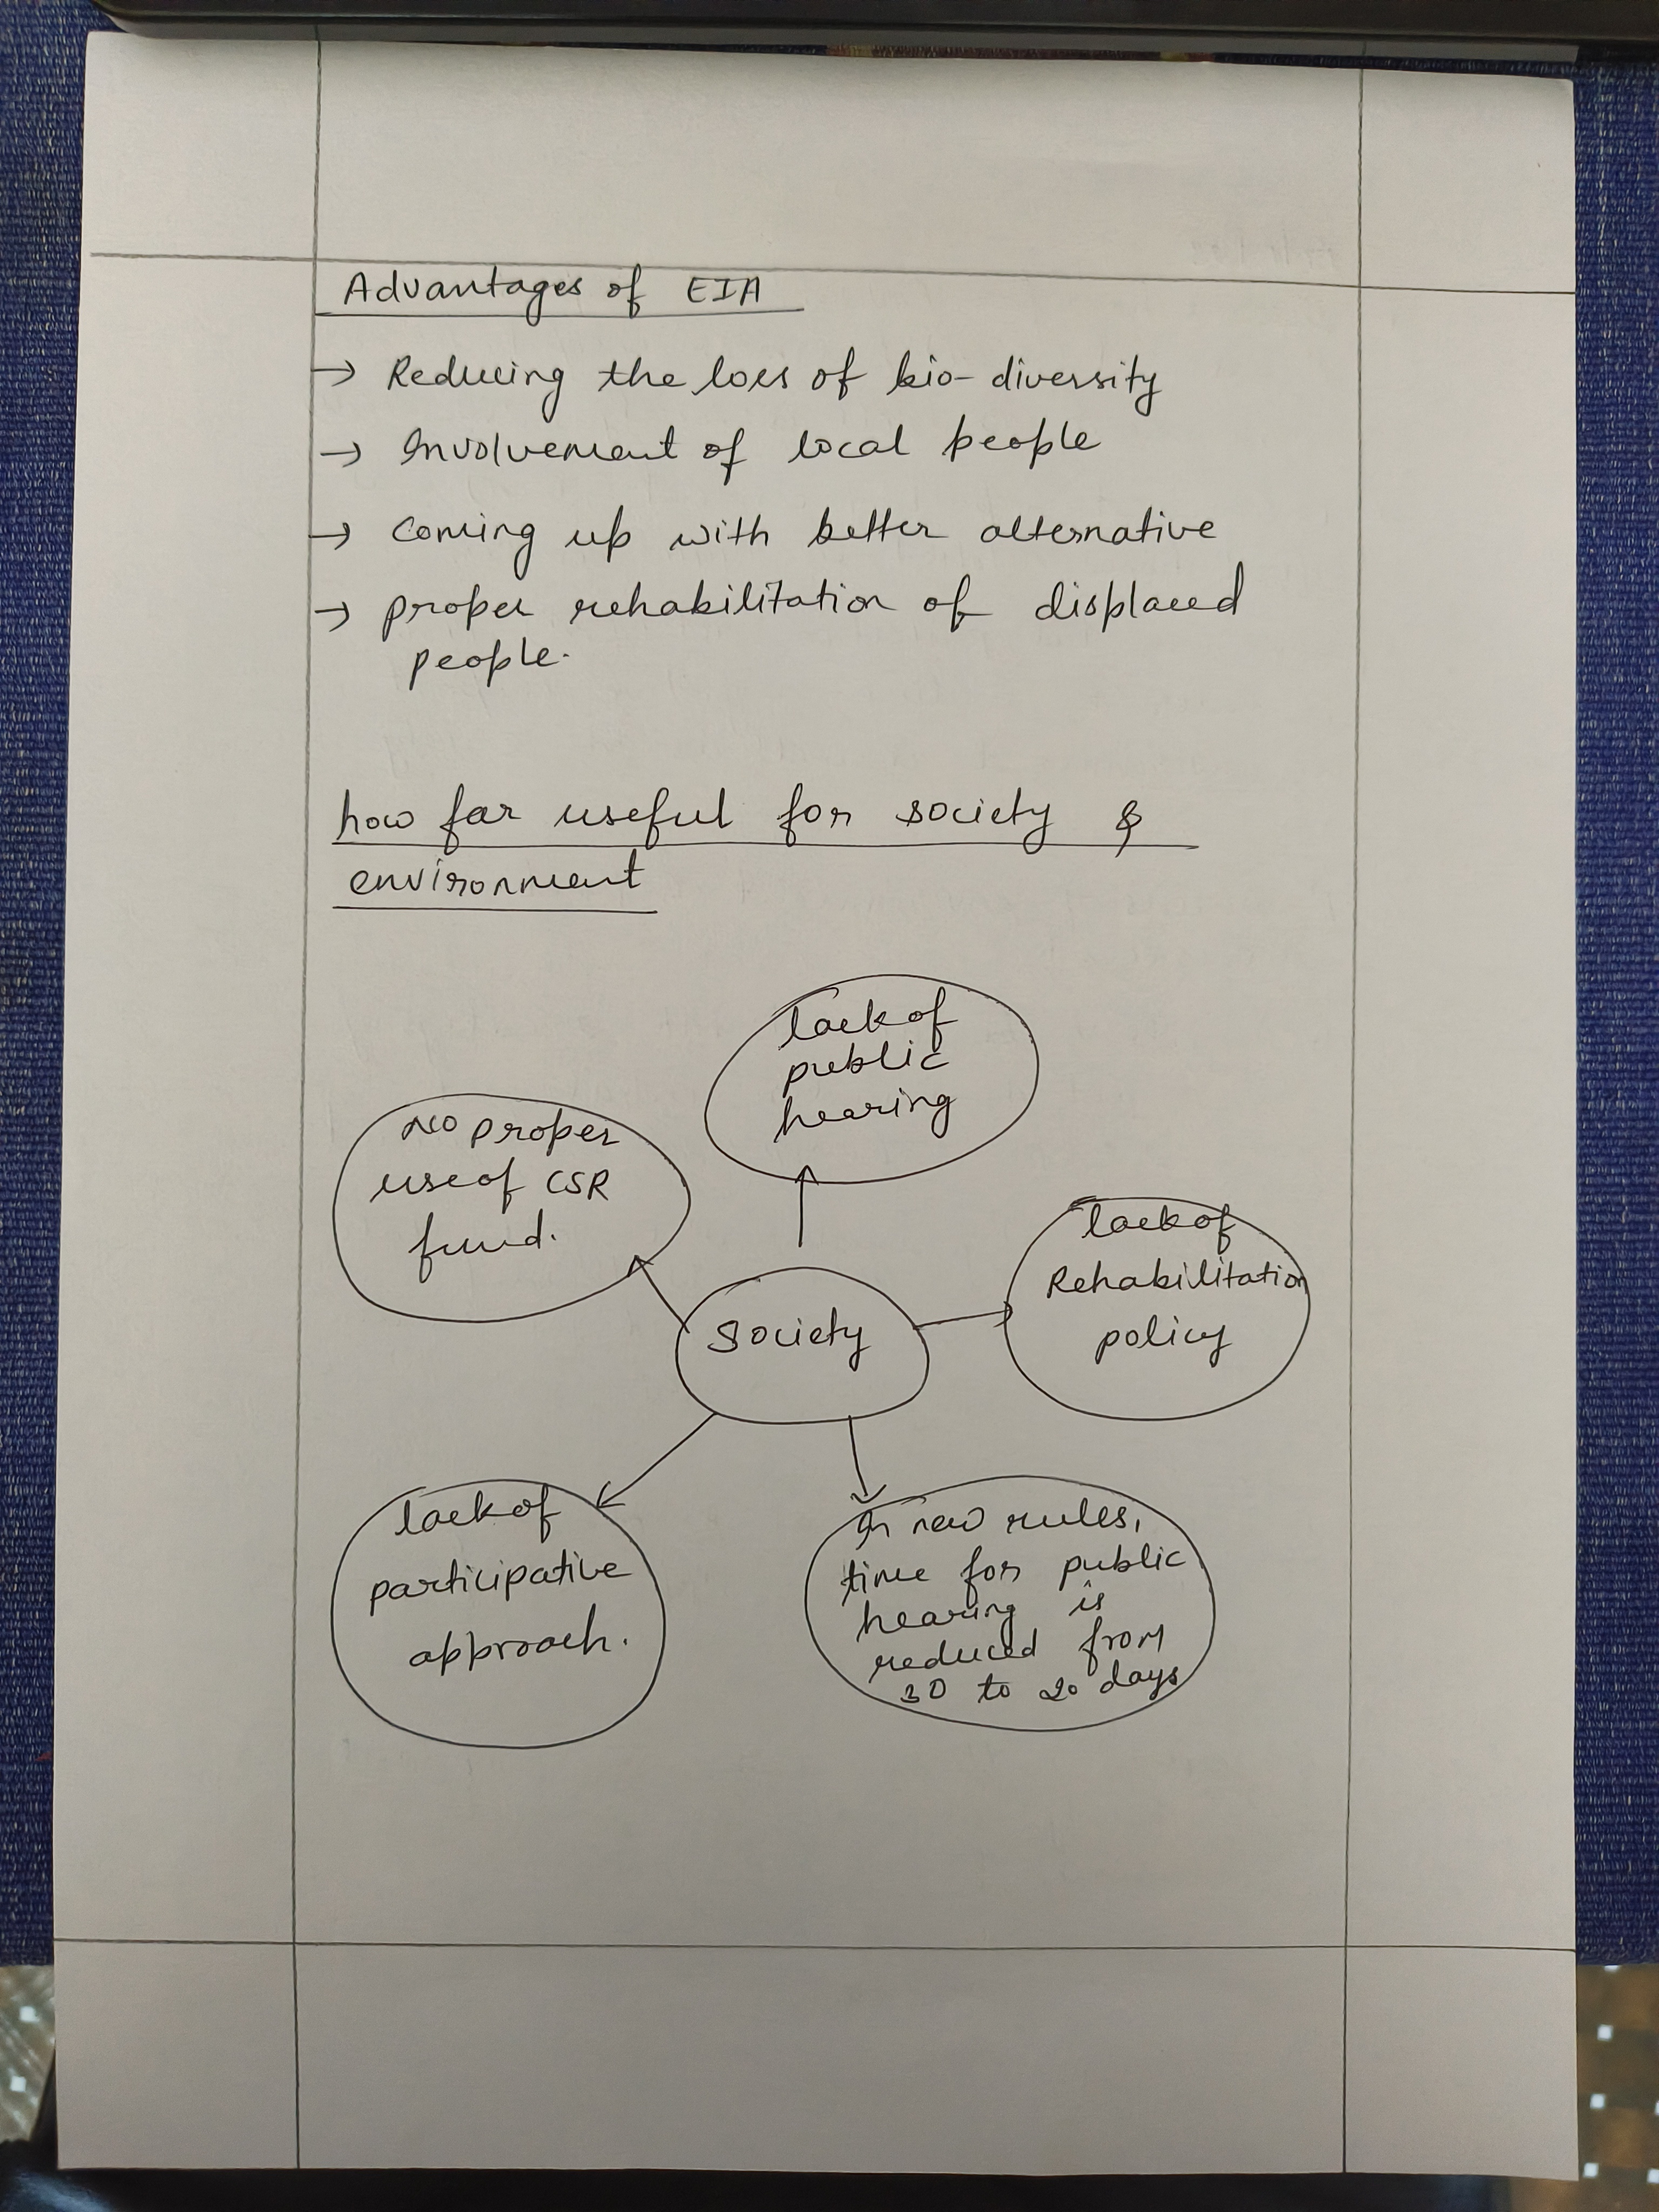 Advantages of EIA
→ Reducing the loss of bio-diversity
→ Involvement of local people
→ Coming up with better alternative
→ proper rehabilitation of displaced
people.
how far useful for society &
environment
lack of
public
hearing
No proper
use of CSR
fund.
lack of
Rehabilitation
policy
Society
lack of
participative
approach.
In new rules,
time for public
hearing is
reduced from
30 to 20 days